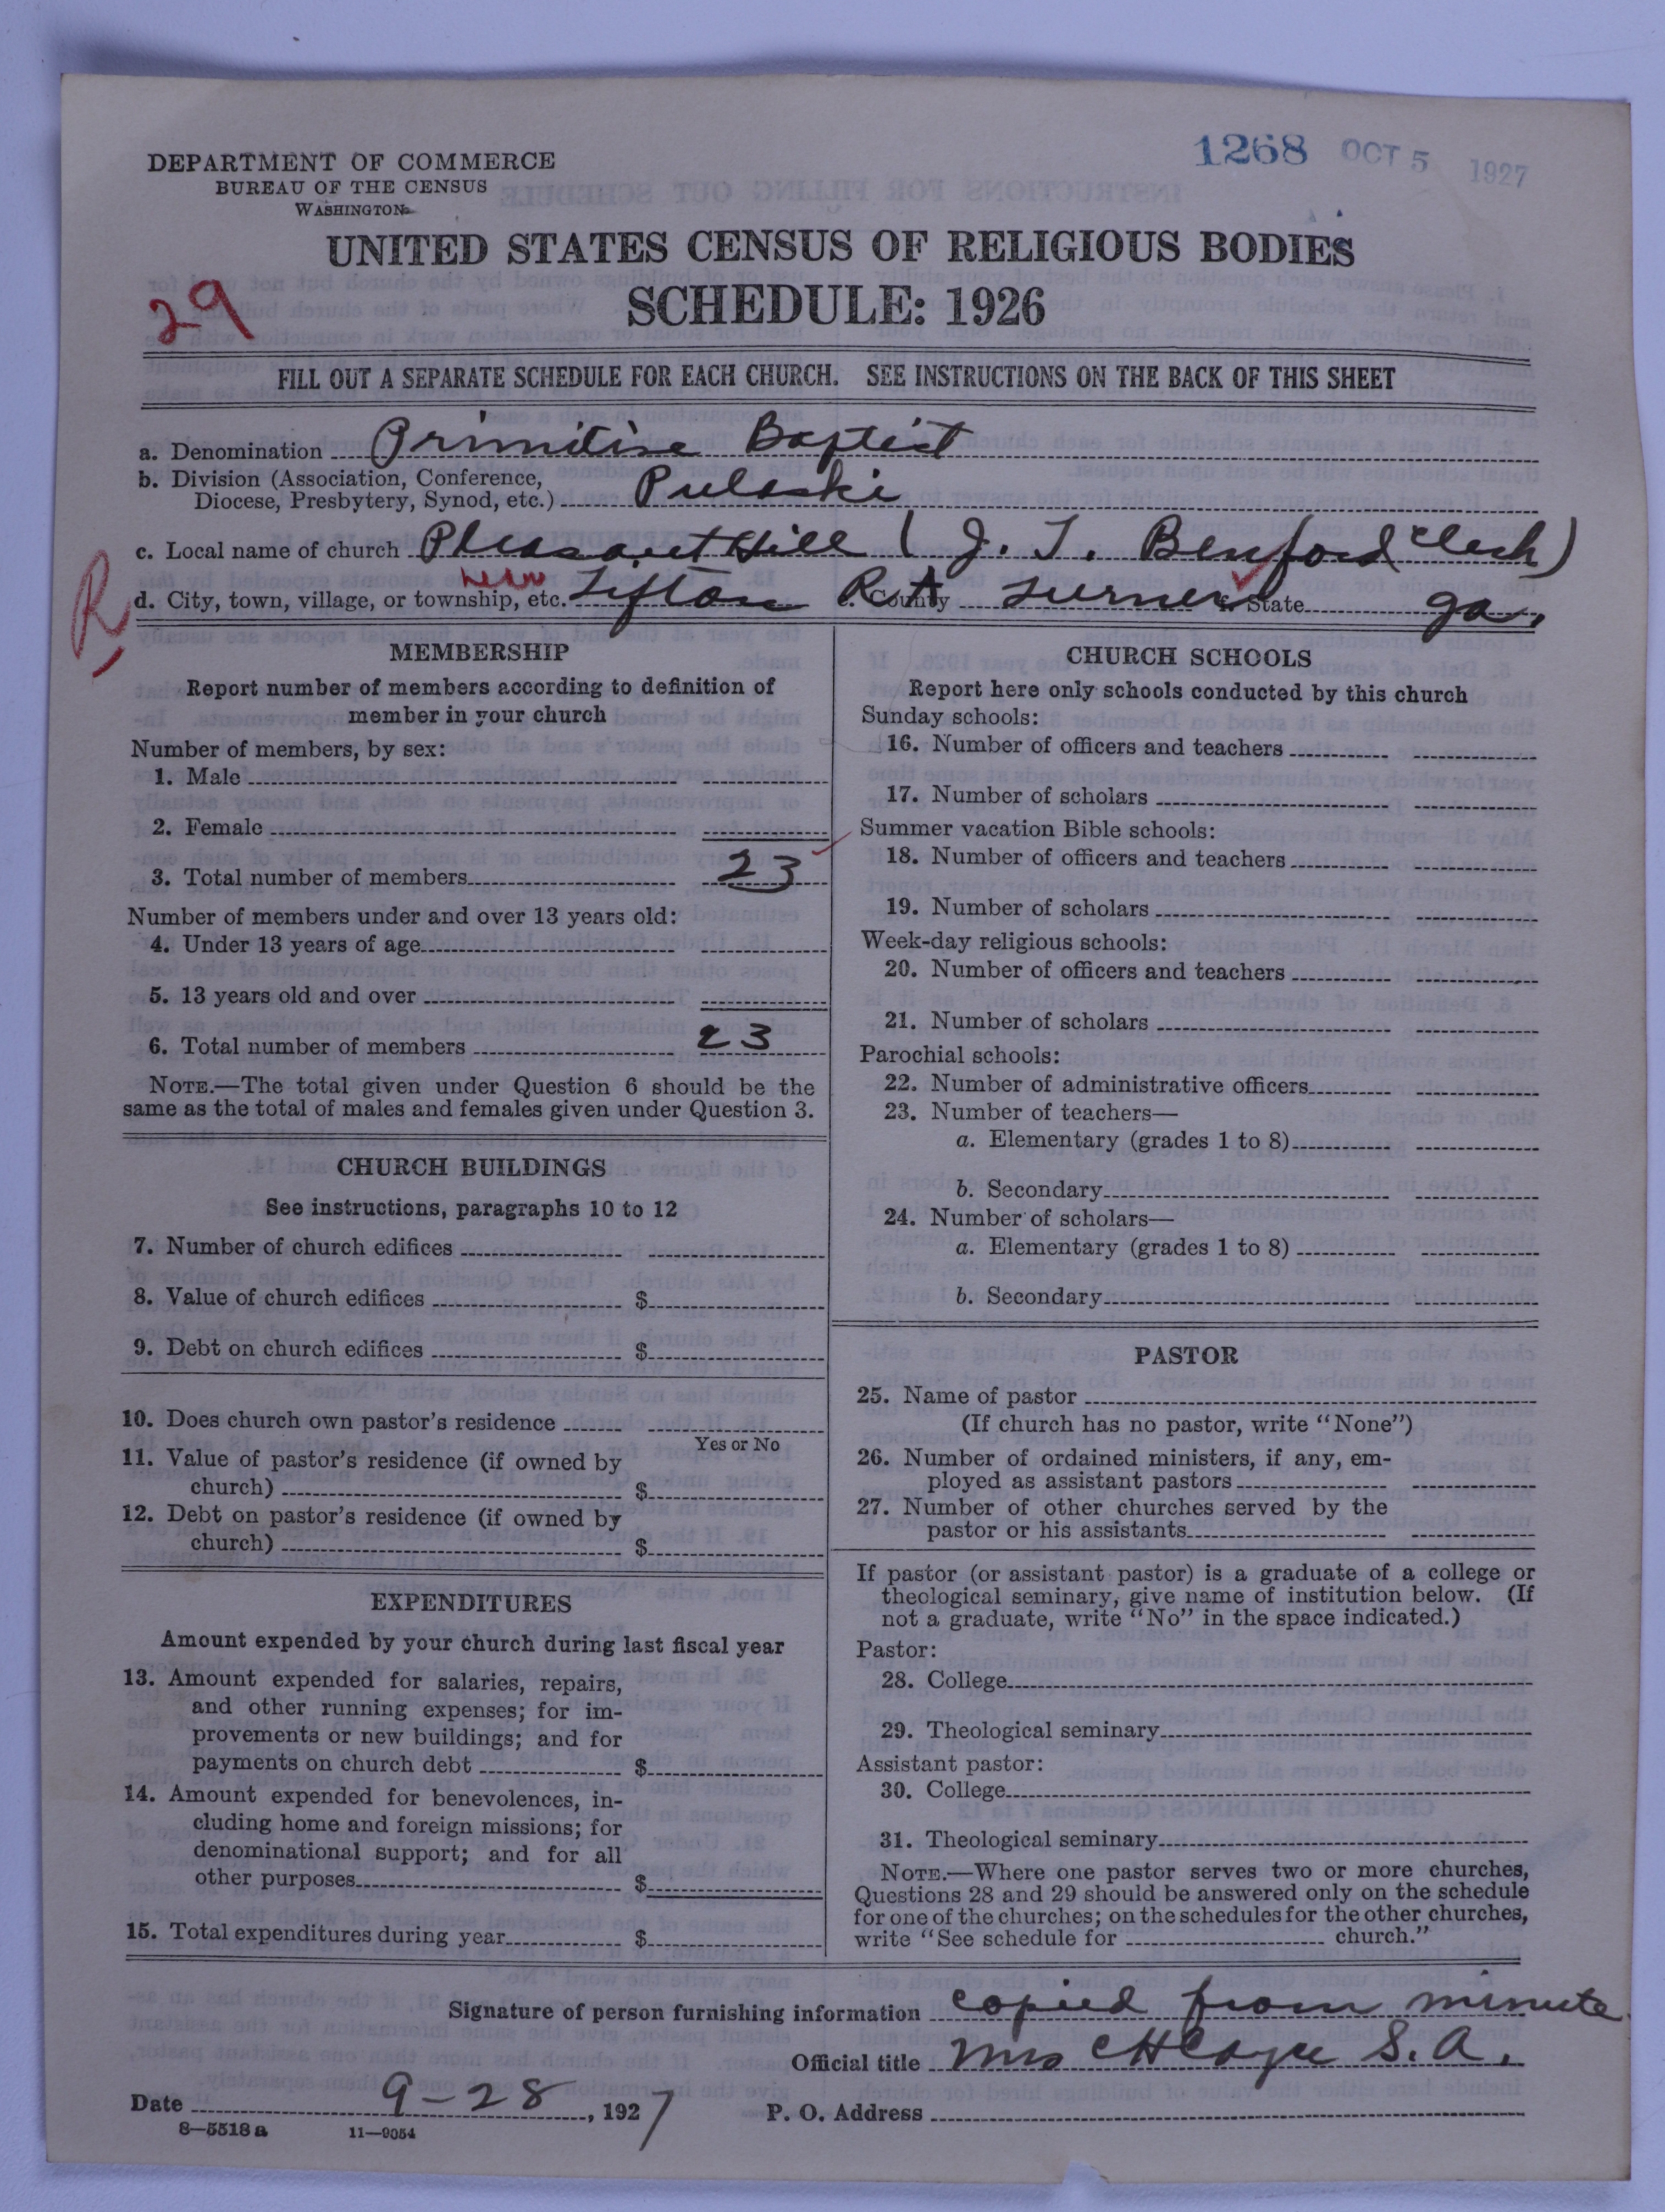 1268 OCT 5 1927
DEPARTMENT OF COMMERCE
BUREAU OF THE CENSUS
WASHINGTON
UNITED STATES CENSUS OF RELIGIOUS BODIES
SCHEDULE: 1926
29
FILL OUT A SEPARATE SCHEDULE FOR EACH CHURCH. SEE INSTRUCTIONS ON THE BACK OF THIS SHEET
a. Denomination Primitive Baptist
b. Division (Association, Conference,
Diocese, Presbytery, Synod, etc.) Pulaski
c. Local name of church Pleasant Hill ( J. T. Benford Clerk)
R
near
d. City, town, village, or township, etc. Tifton R.A e. County Turner f. State Ga.
MEMBERSHIP
Report number of members according to definition of
member in your church
Number of members, by sex:
1. Male
2. Female
3. Total number of members 23
Number of members under and over 13 years old:
4. Under 13 years of age
5. 13 years old and over
6. Total number of members 23
NOTE.—The total given under Question 6 should be the
same as the total of males and females given under Question 3.
CHURCH BUILDINGS
See instructions, paragraphs 10 to 12
7. Number of church edifices
8. Value of church edifices $
9. Debt on church edifices $
10. Does church own pastor's residence
Yes or No
11. Value of pastor's residence (if owned by
church) $
12. Debt on pastor's residence (if owned by
church) $
EXPENDITURES
Amount expended by your church during last fiscal year
13. Amount expended for salaries, repairs,
and other running expenses; for im-
provements or new buildings; and for
payments on church debt $
14. Amount expended for benevolences, in-
cluding home and foreign missions; for
denominational support; and for all
other purposes $
15. Total expenditures during year $
CHURCH SCHOOLS
Report here only schools conducted by this church
Sunday schools:
16. Number of officers and teachers
17. Number of scholars
Summer vacation Bible schools:
18. Number of officers and teachers
19. Number of scholars
Week-day religious schools:
20. Number of officers and teachers
21. Number of scholars
Parochial schools:
22. Number of administrative officers
23. Number of teachers—
a. Elementary (grades 1 to 8)
b. Secondary
24. Number of scholars—
a. Elementary (grades 1 to 8)
b. Secondary
PASTOR
25. Name of pastor
(If church has no pastor, write "None")
26. Number of ordained ministers, if any, em-
ployed as assistant pastors
27. Number of other churches served by the
pastor or his assistants
If pastor (or assistant pastor) is a graduate of a college or
theological seminary, give name of institution below. (If
not a graduate, write "No" in the space indicated.)
Pastor:
28. College
29. Theological seminary
Assistant pastor:
30. College
31. Theological seminary
NOTE.—Where one pastor serves two or more churches,
Questions 28 and 29 should be answered only on the schedule
for one of the churches; on the schedules for the other churches,
write "See schedule for church."
Signature of person furnishing information copied from minute
Official title Mrs C H Cayce S.A.
Date 9-28, 1927 P. O. Address
8-5518 a 11-9054